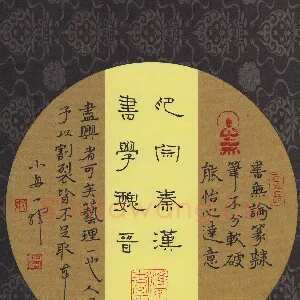 書無論篆隸
筆不分軟破
能怡心達意
印宗秦漢
書學魏晉
盡興者可矣藝理也人
予以割裂皆不足取